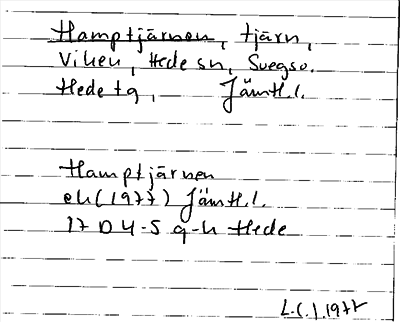 Hamptjärnen, tjärn,
Viken, Hede sn, Svegs o.
Hede tg, Jämtl.l.
Hamptjärnen
ek (1977) Jämtl.l.
17 D 4-5 g-h Hede
1977